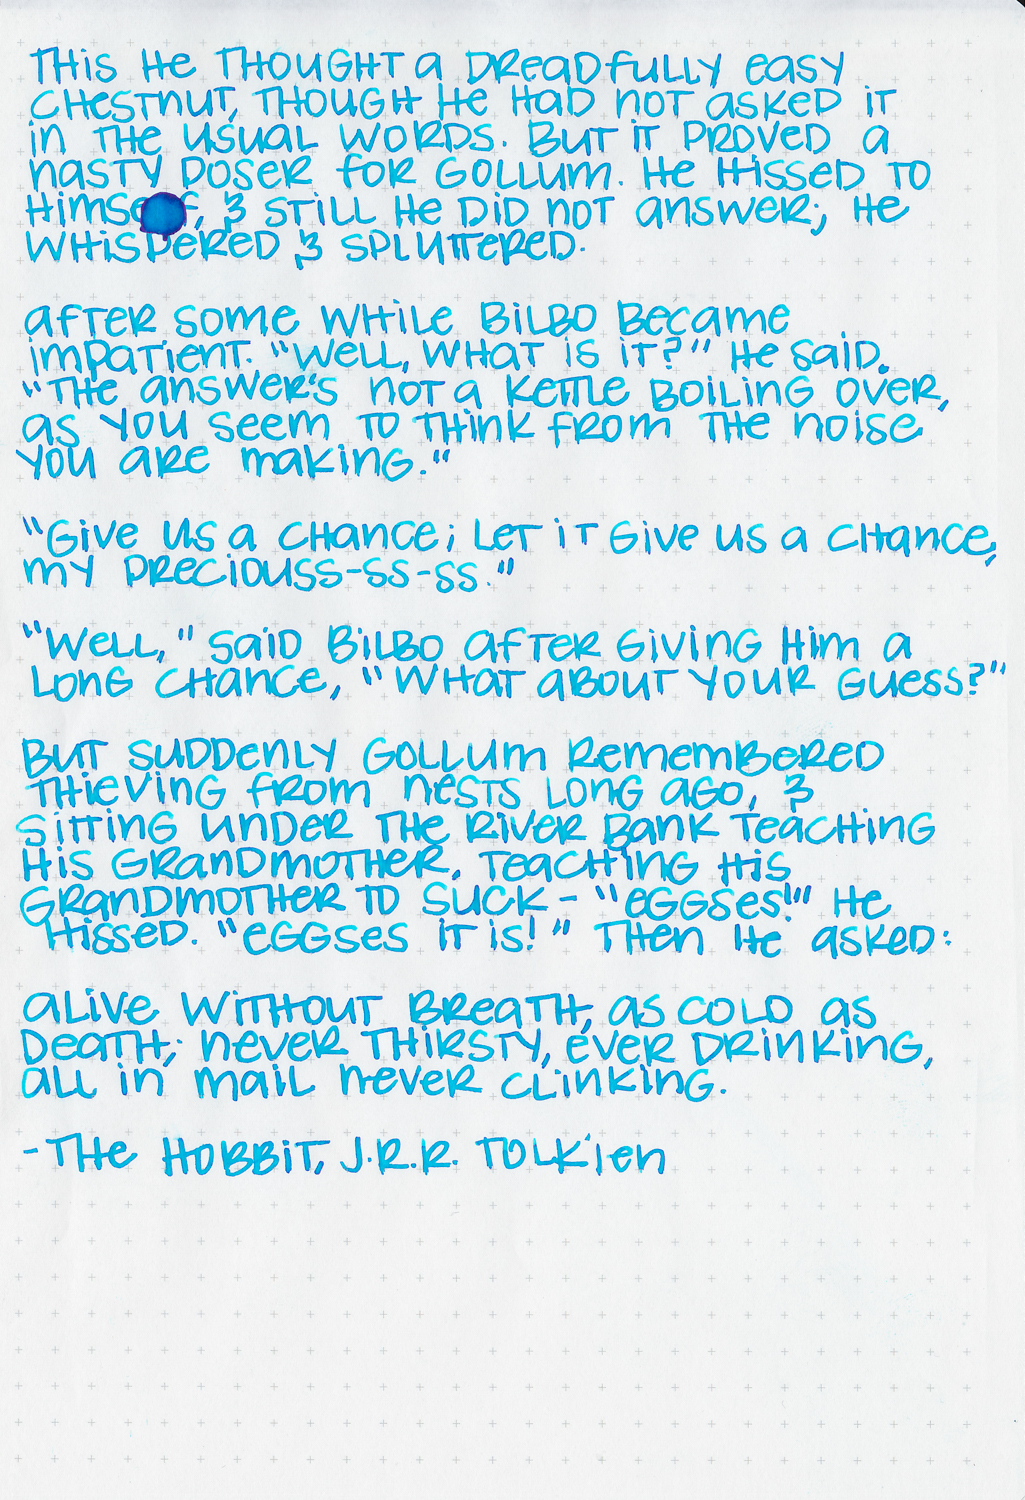 This he thought a dreadfully easy
chestnut, though he had not asked it
in the usual words. But it proved a
nasty poser for Gollum. He hissed to
himself, & still he did not answer; he
whispered & spluttered.
After some while Bilbo became
impatient. "Well, what is it?" he said.
"The answer's not a kettle boiling over,
as you seem to think from the noise
you are making."
"Give us a chance; let it give us a chance,
my preciouss-ss-ss."
"Well," said Bilbo after giving him a
long chance, "what about your guess?"
But suddenly Gollum remembered
thieving from nests long ago, &
sitting under the river bank teaching
his grandmother, teaching his
grandmother to suck - "eggses!" he
hissed. "eggses it is!" Then he asked:
Alive without breath, as cold as
death; never thirsty, ever drinking,
all in mail never clinking.
-The Hobbit, J.R.R. Tolkien